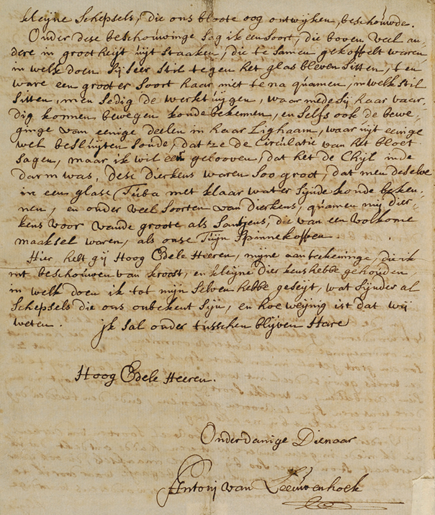 kleijne Schepsels, die ons bloote oog ontwijken, beschouwde.
Onder dese beschouwinge sag ik een soort, die boven veel an
dere in groot heijt uijt staaken, die te samen gekoppelt waren
in welk doen sij seer stil tegen het glas bleven sitten, ten
ware een grooter soort haar niet te na quamen, in welk stil
sitten, men sodig de werktuijgen, waar mede sij haar vaar,
dig konnen bewegen konde bekennen, en selfs ook de bewe,
ginge van eenige deelen in haar Lighaam, waar uijt eenige
wel besluijten soude, dat ze de Circulatie van het bloet
sagen, maar ik wil een gelooven, dat het de Chijl inde
darm was, dese dierkens waren soo groot, dat men deselve
in een glase Tuba met klaar water sijnde konde beken
nen, en onder veel soorten van dierkens, quamen mij dier
kens voor vande groote als Santjens, die van een volkome
maaksel waren, als onse Tuijn Spinnekoppen.
Hier hebt gij Hoog Edele Heeren, mijne aantekeninge, die ik
int beschouwen van kroost, en kleijne dierkens hebbe gehouden
in welk doen ik tot mijn selven hebbe geseijt, wat sijnder al
Schepsels die ons onbekent sijn, en hoe weijnig is dat wij
weten.
ik sal onder tusschen blijven Hare
Hoog Edele Heeren.
Onderdanige Dienaar
Antonj van Leeuwenhoek